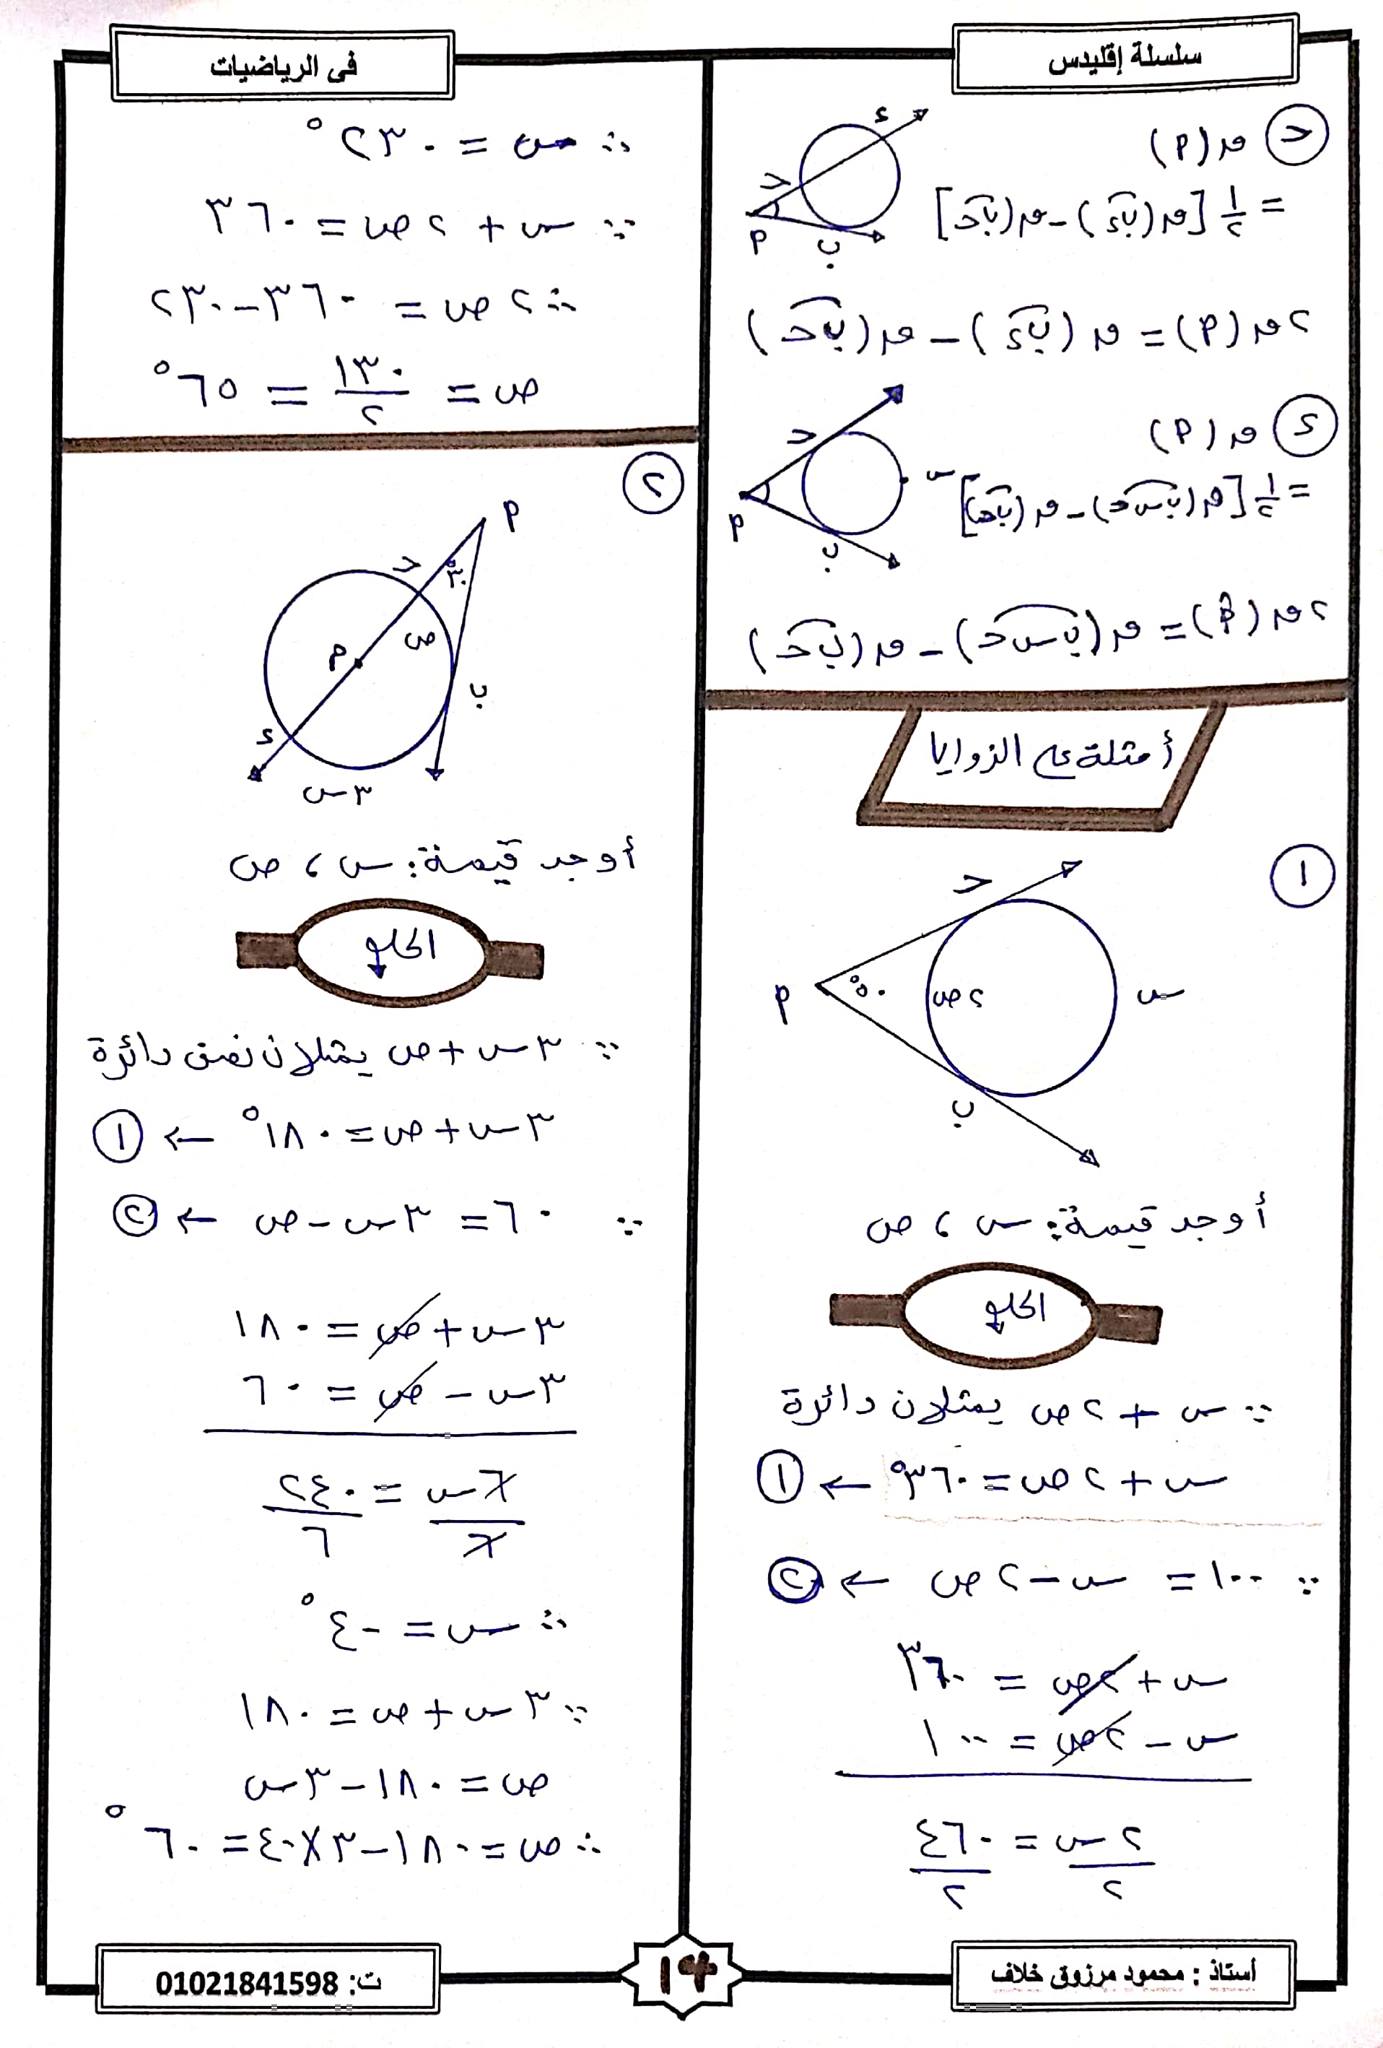 سلسلة إقليدس
فى الرياضيات
ح ق(م)
= ١/٢ [ق(بء) - ق(بح)]
ء ح م ب
٢ق(م) = ق(بء) - ق(بح)
ء ق(م)
= ١/٢ [ق(ب س ح) - ق(بح)]
ح س م ب
٢ق(م) = ق(ب س ح) - ق(بح)
أمثلة على الزوايا
١
ح
م ٥٠° ٢ص س
ب
أوجد قيمة: س ، ص
الحلو
∵ س + ٢ص يمثلان دائرة
س + ٢ص = ٣٦٠° ← ١
∵ ١٠٠ = س - ٢ص ← ٢
س + ٢ص = ٣٦٠
س - ٢ص = ١٠٠
٢س/٢ = ٤٦٠/٢
∴ س = ٢٣٠°
∵ س + ٢ص = ٣٦٠
∴ ٢ص = ٣٦٠ - ٢٣٠
ص = ١٣٠/٢ = ٦٥°
٢
م
ح ٣٠°
ص
م
ب
ء
٣س
أوجد قيمة: س ، ص
الحلو
∵ ٣س + ص يمثلان نصف دائرة
٣س + ص = ١٨٠° ← ١
∵ ٦٠ = ٣س - ص ← ٢
٣س + ص = ١٨٠
٣س - ص = ٦٠
٦س/٦ = ٢٤٠/٦
∴ س = ٤٠°
∵ ٣س + ص = ١٨٠
ص = ١٨٠ - ٣س
∴ ص = ١٨٠ - ٣×٤٠ = ٦٠°
أستاذ : محمود مرزوق خلاف
١٣
ت: 01021841598